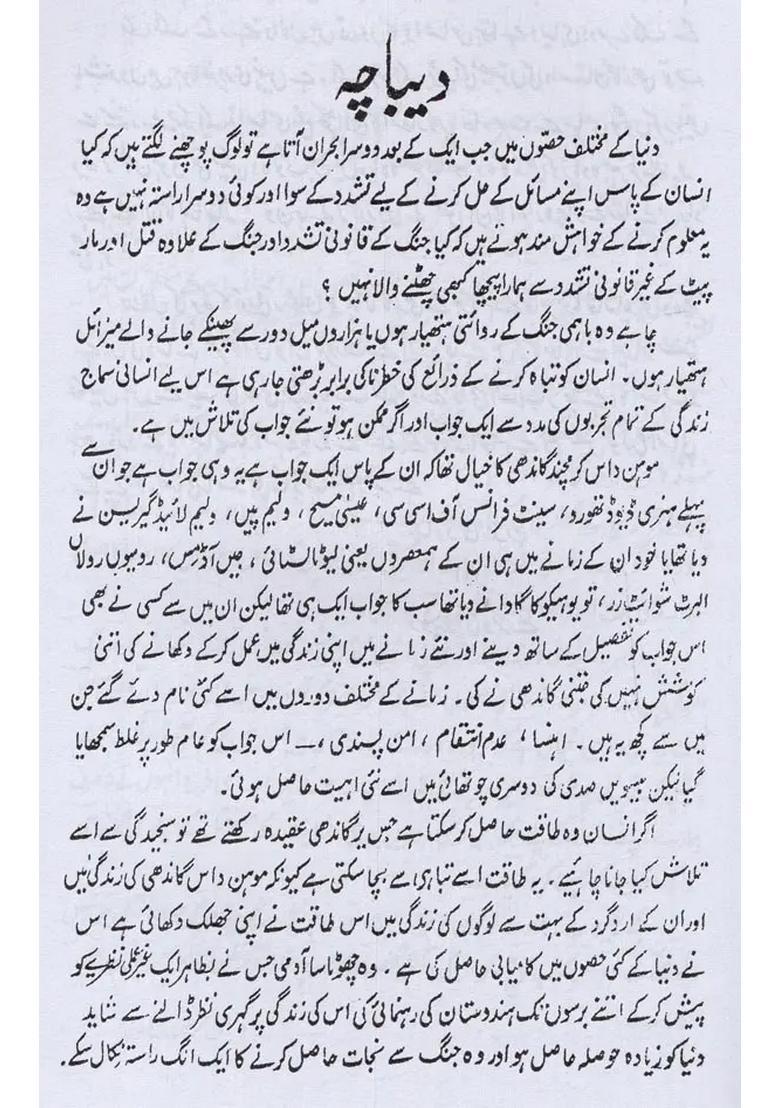 دیباچہ
دنیا کے مختلف حصّوں میں جب ایک کے بعد دوسرا بحران آتا ہے تو لوگ پوچھنے لگتے ہیں کہ کیا
انسان کے پاس اپنے مسائل کے حل کرنے کے لیے تشدد کے سوا اور کوئی دوسرا راستہ نہیں ہے وہ
یہ معلوم کرنے کے خواہش مند ہوتے ہیں کہ کیا جنگ کے قانونی تشدد اور جنگ کے علاوہ قتل اور مار
پیٹ کے غیر قانونی تشدد سے ہمارا پیچھا کبھی چھٹنے والا نہیں ؟
چاہے وہ باہمی جنگ کے روائتی ہتھیار ہوں یا ہزاروں میل دور سے پھینکے جانے والے میزائل
ہتھیار ہوں۔ انسان کو تباہ کرنے کے ذرائع کی خطرناکی برابر بڑھتی جا رہی ہے اس لیے انسانی سماج
زندگی کے تمام تجربوں کی مدد سے ایک جواب اور اگر ممکن ہو تو نئے جواب کی تلاش میں ہے۔
موہن داس کرمچند گاندھی کا خیال تھا کہ ان کے پاس ایک جواب ہے یہ وہی جواب ہے جو ان سے
پہلے ہنری ڈیوڈ تھورو، سینٹ فرانسس آف اسی سی، عیسیٰ مسیح، ولیم پین، ولیم لائیڈ گیریسن نے
دیا تھا یا خود ان کے زمانے میں ہی ان کے ہمعصروں یعنی لیو ٹالسٹائی، جین آڈمس، رومیوں رولاں
البرٹ شوائٹ زر، تو یوہیکو کاگاوا نے دیا تھا سب کا جواب ایک ہی تھا لیکن ان میں سے کسی نے بھی
اس جواب کو تفصیل کے ساتھ دینے اور نئے زمانے میں اپنی زندگی میں عمل کر کے دکھانے کی اتنی
کوشش نہیں کی جتنی گاندھی نے کی۔ زمانے کے مختلف دوروں میں اسے کئی نام دئے گئے جن
میں سے کچھ یہ ہیں۔ اہنسا، عدم انتقام، امن پسندی، ـــ اس جواب کو عام طور پر غلط سمجھایا
گیا لیکن بیسویں صدی کی دوسری چوتھائی میں اسے نئی اہمیت حاصل ہوئی۔
اگر انسان وہ طاقت حاصل کر سکتا ہے جس پر گاندھی عقیدہ رکھتے تھے تو سنجیدگی سے اسے
تلاش کیا جانا چاہئیے۔ یہ طاقت اسے تباہی سے بچا سکتی ہے کیونکہ موہن داس گاندھی کی زندگی میں
اور ان کے ارد گرد کے بہت سے لوگوں کی زندگی میں اس طاقت نے اپنی جھلک دکھائی ہے اس
نے دنیا کے کئی حصوں میں کامیابی حاصل کی ہے۔ وہ چھوٹا سا آدمی جس نے بظاہر ایک غیر عملی نظریے کو
پیش کر کے اتنے برسوں تک ہندوستان کی رہنمائی کی اس کی زندگی پر گہری نظر ڈالنے سے شاید
دنیا کو زیادہ حوصلہ حاصل ہو اور وہ جنگ سے نجات حاصل کرنے کا ایک الگ راستہ نکال سکے۔